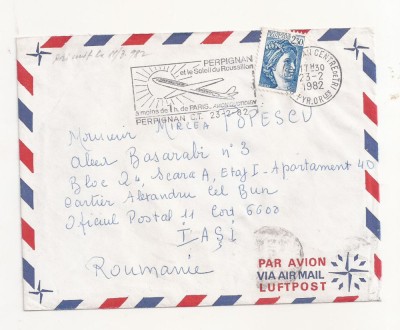 PERPIGNAN
et le Soleil du Roussillon
à moins de 1 h. de PARIS
PERPIGNAN C.T. 23-2-82
2,30
CENTRE DE TRI
17H30
23-2
1982
PYR. OR.
Monsieur MIRCEA POPESCU
aleea Basarabi n° 3
Bloc 24, Scara A, Etaj I - Apartament 40
Cartier Alexandru Cel Bun
Oficiul Postal 11 Cod 6600
IAŞI
Roumanie
PAR AVION
VIA AIR MAIL
LUFTPOST